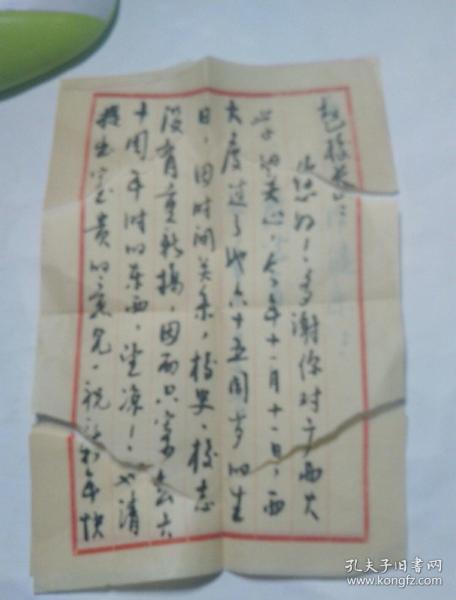 您好!多谢你对广西大
学的关心。今年十一月十一日,西
大度过了她六十五周岁的生
日,因时间关系,校史、校志
没有重新搞,因而只寄去六
十周年时的东西,望谅!也请
提出宝贵的意见。祝新年快
孔夫子旧书网
www.kongfz.com